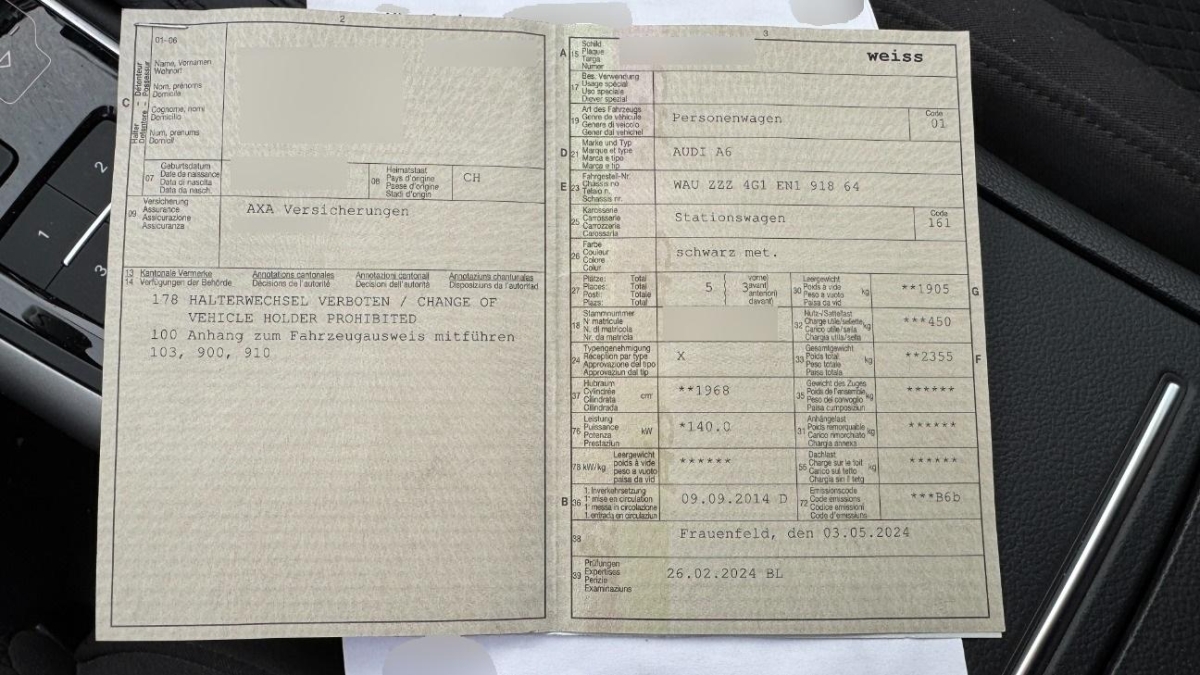 2
01-06
Halter - Détenteur
Detentore - Possessur
C
Name, Vornamen
Wohnort
Nom, prénoms
Domicile
Cognome, nomi
Domicilio
Num, prenums
Domicil
07
Geburtsdatum
Date de naissance
Data di nascita
Data da nasch.
08
Heimatstaat
Pays d'origine
Paese d'origine
Stadi d'origin
CH
09
Versicherung
Assurance
Assicurazione
Assicuranza
AXA Versicherungen
13
14
Kantonale Vermerke
Verfügungen der Behörde
Annotations cantonales
Décisions de l'autorité
Annotazioni cantonali
Decisioni dell'autorità
Annotaziuns chantunalas
Disposiziuns da l'autoritad
178 HALTERWECHSEL VERBOTEN / CHANGE OF
VEHICLE HOLDER PROHIBITED
100 Anhang zum Fahrzeugausweis mitführen
103, 900, 910
3
A
15
Schild
Plaque
Targa
Numer
weiss
17
Bes. Verwendung
Usage spécial
Uso speciale
Diever spezial
19
Art des Fahrzeugs
Genre de véhicule
Genere di veicolo
Gener dal vehichel
Personenwagen
Code
01
D
21
Marke und Typ
Marque et type
Marca e tipo
Marca e tip
AUDI A6
E
23
Fahrgestell-Nr.
Châssis no
Telaio n.
Schassis nr.
WAU ZZZ 4G1 EN1 918 64
25
Karosserie
Carrosserie
Carrozzeria
Carossaria
Stationswagen
Code
161
26
Farbe
Couleur
Colore
Colur
schwarz met.
27
Plätze: Total
Places: Total
Posti: Totale
Plazs: Total
5
3
vorne)
avant)
anteriori)
davant)
30
Leergewicht
Poids à vide
Peso a vuoto
Paisa da vid
kg
**1905
G
18
Stammnummer
N° matricule
N. di matricola
Nr. da matricla
32
Nutz-/Sattellast
Charge utile/sellette
Carico utile/sella
Chargia utila/sella
kg
***450
24
Typengenehmigung
Réception par type
Approvazione del tipo
Approvaziun dal tip
X
33
Gesamtgewicht
Poids total
Peso totale
Paisa totala
kg
**2355
F
37
Hubraum
Cylindrée
Cilindrata
Cilindrada
cm³
**1968
35
Gewicht des Zuges
Poids de l'ensemble
Peso del convoglio
Paisa cumposiziun
kg
******
76
Leistung
Puissance
Potenza
Prestaziun
kW
*140.0
31
Anhängelast
Poids remorquable
Carico rimorchiato
Chargia annexa
kg
******
78 kW/kg
Leergewicht
poids à vide
peso a vuoto
paisa da vid
******
55
Dachlast
Charge sur le toit
Carico sul tetto
Chargia sin il tetg
kg
******
B
36
1. Inverkehrsetzung
1re mise en circulation
1a messa in circolazione
1. entrada en circulaziun
09.09.2014 D
72
Emissionscode
Code émissions
Codice emissioni
Code d'emissiuns
***B6b
38
Frauenfeld, den 03.05.2024
39
Prüfungen
Expertises
Perizie
Examinaziuns
26.02.2024 BL
2
1
3